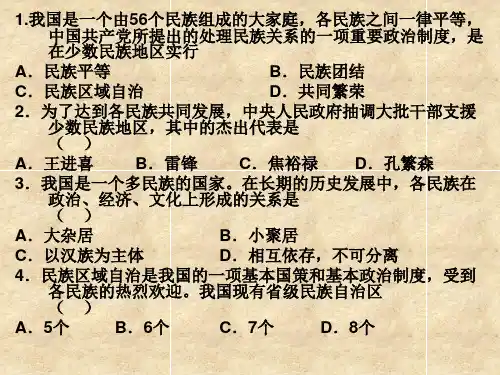 1.我国是一个由56个民族组成的大家庭，各民族之间一律平等，
中国共产党所提出的处理民族关系的一项重要政治制度，是
在少数民族地区实行
A．民族平等 B．民族团结
C．民族区域自治 D．共同繁荣
2．为了达到各民族共同发展，中央人民政府抽调大批干部支援
少数民族地区，其中的杰出代表是
（ ）
A．王进喜 B．雷锋 C．焦裕禄 D．孔繁森
3．我国是一个多民族的国家。在长期的历史发展中，各民族在
政治、经济、文化上形成的关系是
（ ）
A．大杂居 B．小聚居
C．以汉族为主体 D．相互依存，不可分离
4．民族区域自治是我国的一项基本国策和基本政治制度，受到
各民族的热烈欢迎。我国现有省级民族自治区
（ ）
A．5个 B．6个 C．7个 D．8个